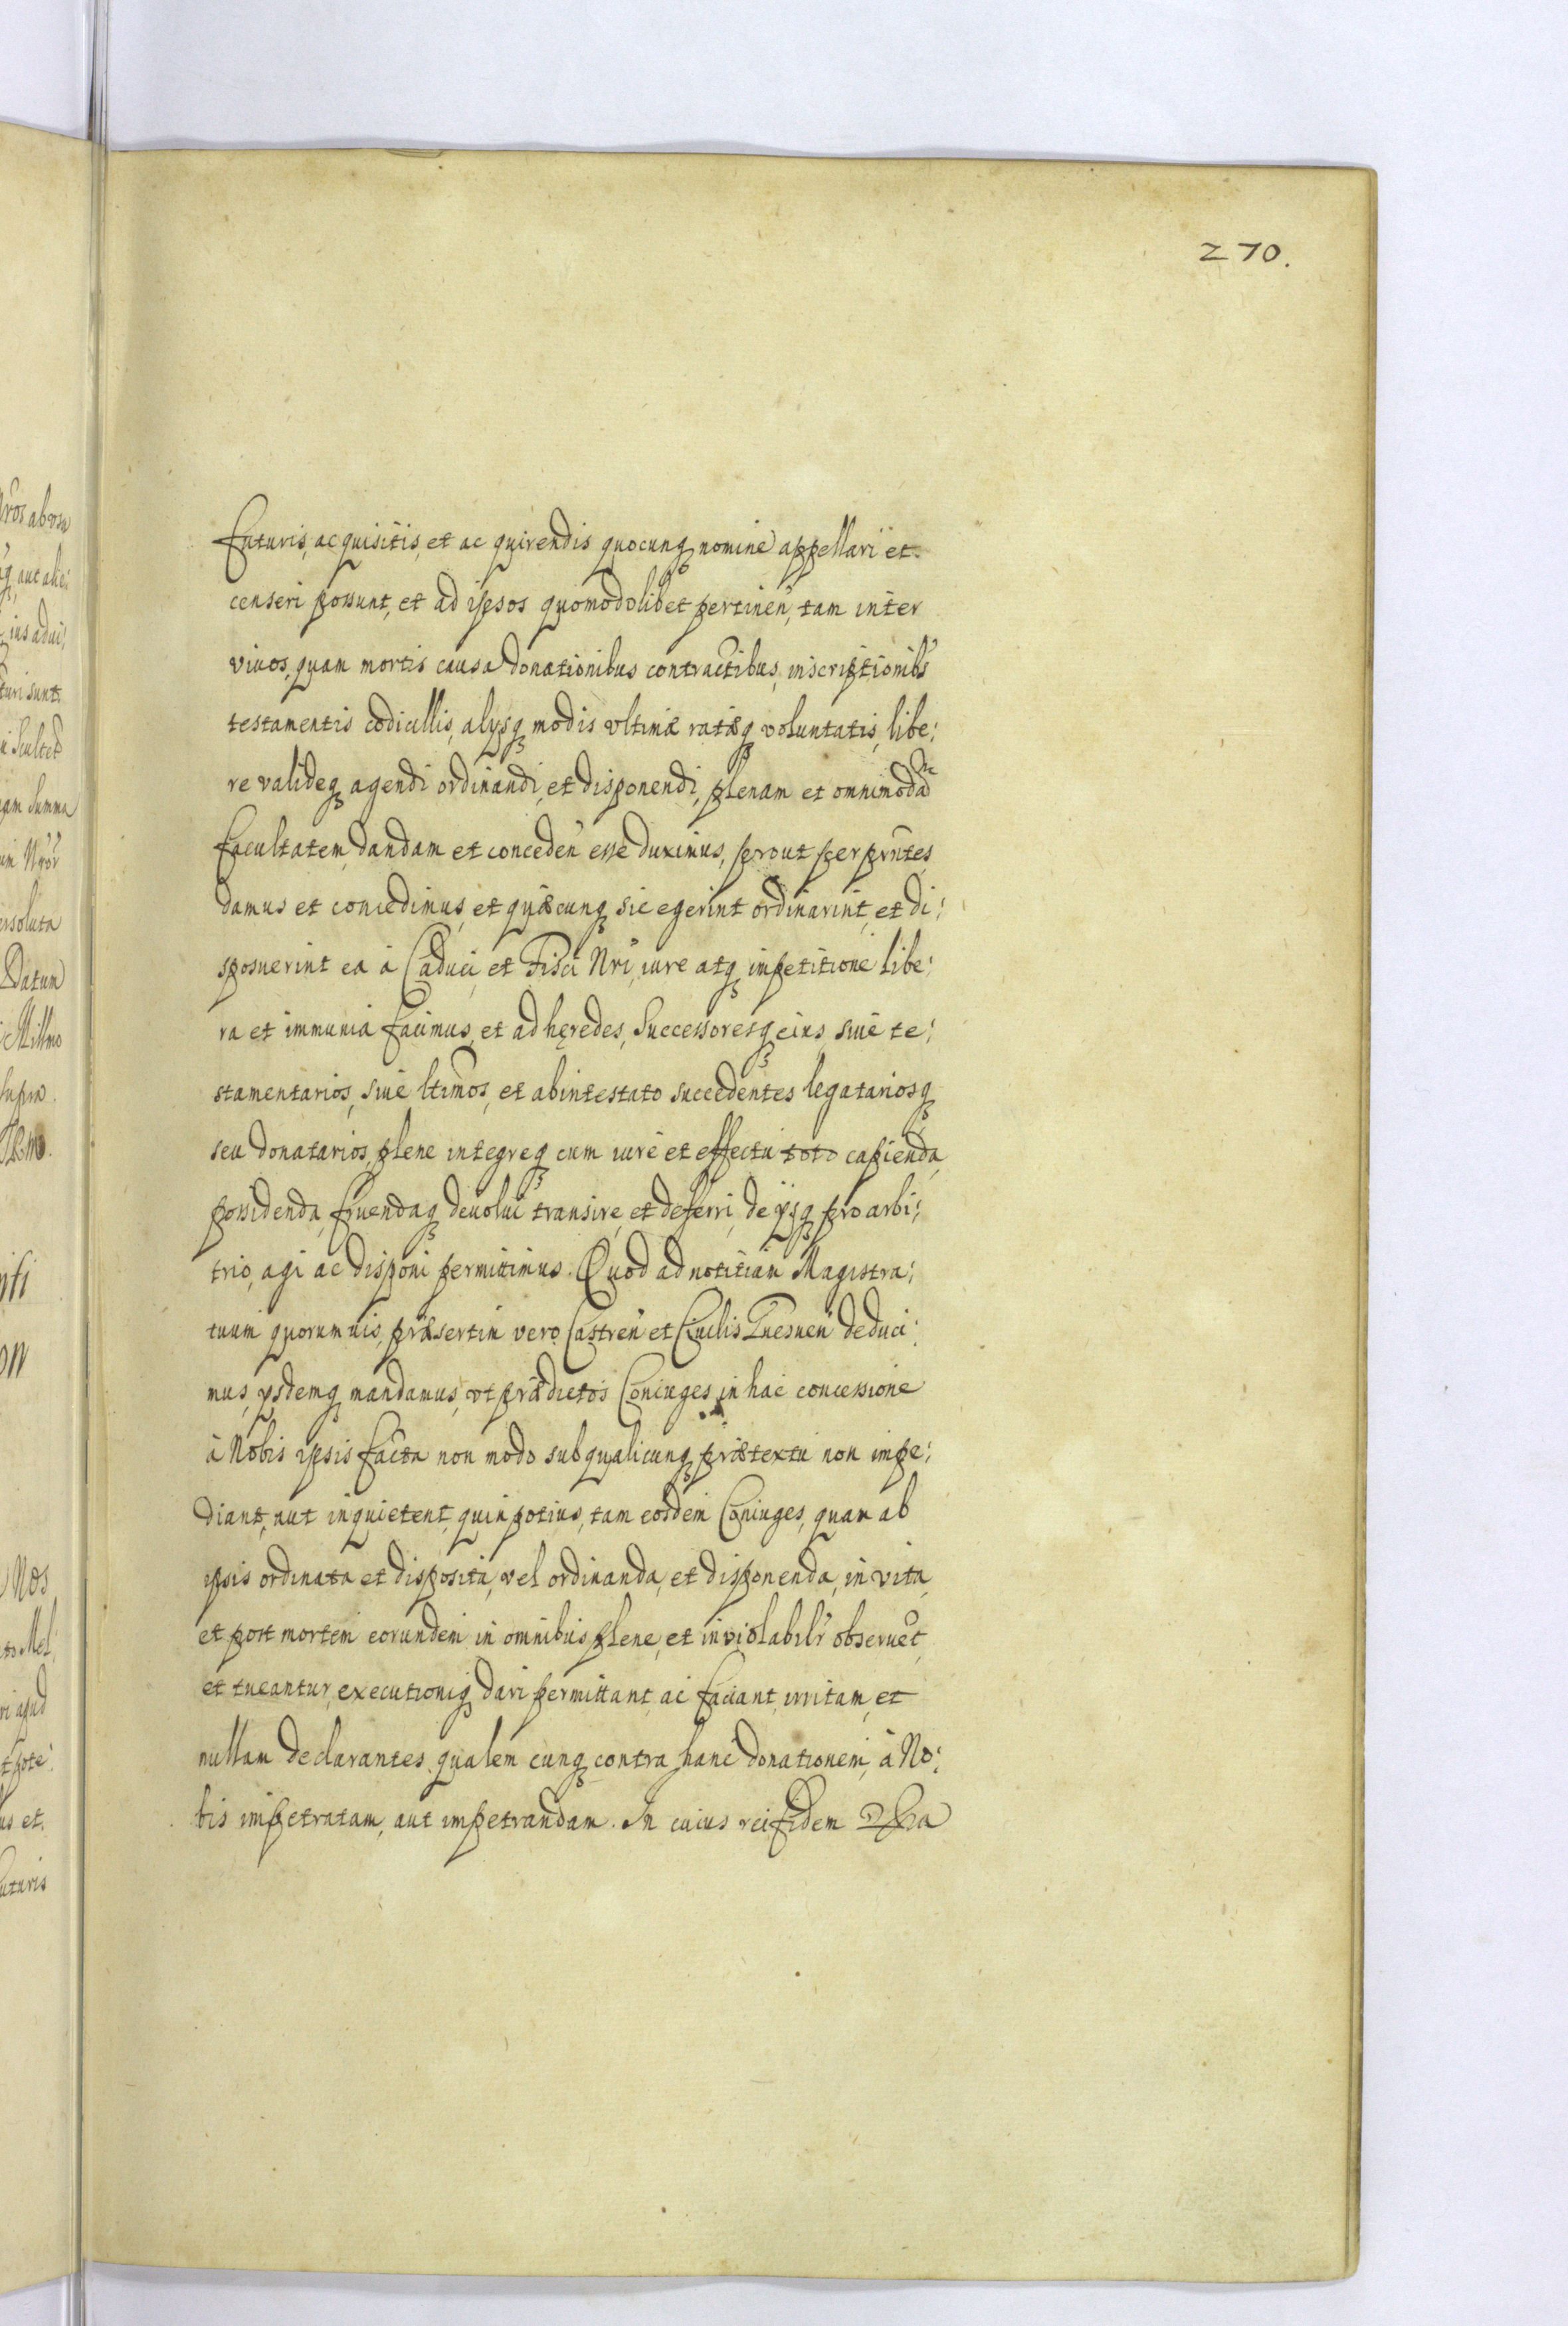 270.
futuris, acquisitis, et ac quirendis quocunq nomine appellari et
censeri possunt, et ad ipsos quomodolibet pertineń, tam inter
viuos, quam mortis causa donationibus contractibus, inscriptionib9
testamentis codicillis, alysq modis vltimæ ratæq voluntatis, libe:
re valideq agendi ordinandi, et disponendi, plenam et omnimodam
facultatem, dandam et concedeń esse duximus, prout per pñtes
damus et concedimus, et quæcunq sic egerint ordinarint, et di:
sposuerint ea à Caduci, et Fisci Nri, iure atq impetitione libe:
ra et immunia facimus, et ad hęredes, Successoresq eius siue te:
stamentarios, siue ltimos, et abintestato succedentes legatariosq
seu donatarios, plene integreq cum iure et effectu toto capienda,
possidenda, fruendaq deuolui transire, et deferri, de ysq pro arbi:
trio, agi ac disponi permittimus. Quod ad notitiam Magistra:
tuum quorumuis, præsertim vero Castreń et Ciuilis Gnesneń deduci:
mus, ysdemq mandamus, vt prædictos Coniuges in hac concessione
à Nobis ipsis facta non modo sub qualicunq prætextu non impe:
diant, aut inquietent, quin potius, tam eosdem Coniuges, quam ab
ipsis ordinata et disposita, vel ordinanda, et disponenda, in vita,
et post mortem eorundem in omnibus plene, et inviolabilr obseruet,
et tueantur, executioniq dari permittant, ac faciant, irritam, et
nullam declarantes qualem cunq contra hanc donationem, à No:
bis impetratam, aut impetrandam. In cuius rei fidem